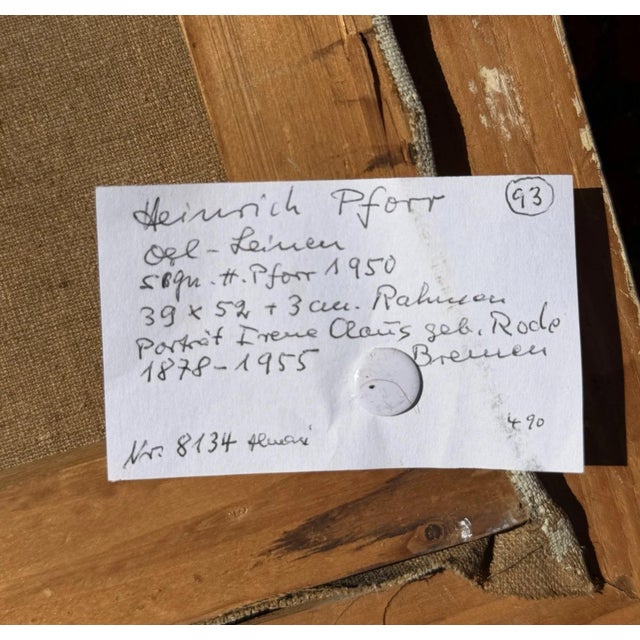 Heinrich Pforr 93
Oel-Leinen
sign. H. Pforr 1950
39 x 52 + 3 cm. Rahmen
Porträt Irene Claus geb. Rode
1878-1955 Bremen
490
Nr. 8134